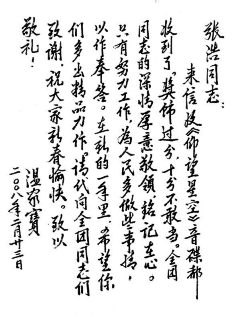 张浩同志：
来信收《仰望星空》音碟都
收到了。奖饰过分，十分不敢当。全团
同志的深情厚意敬领，铭记在心。
只有努力工作，为人民多做些事情，
以作奉答。在新的一年里，希望你
们多出精品力作。请代向全团同志们
致谢，祝大家新春愉快。致以
敬礼！
温家宝
二〇〇八年二月廿三日